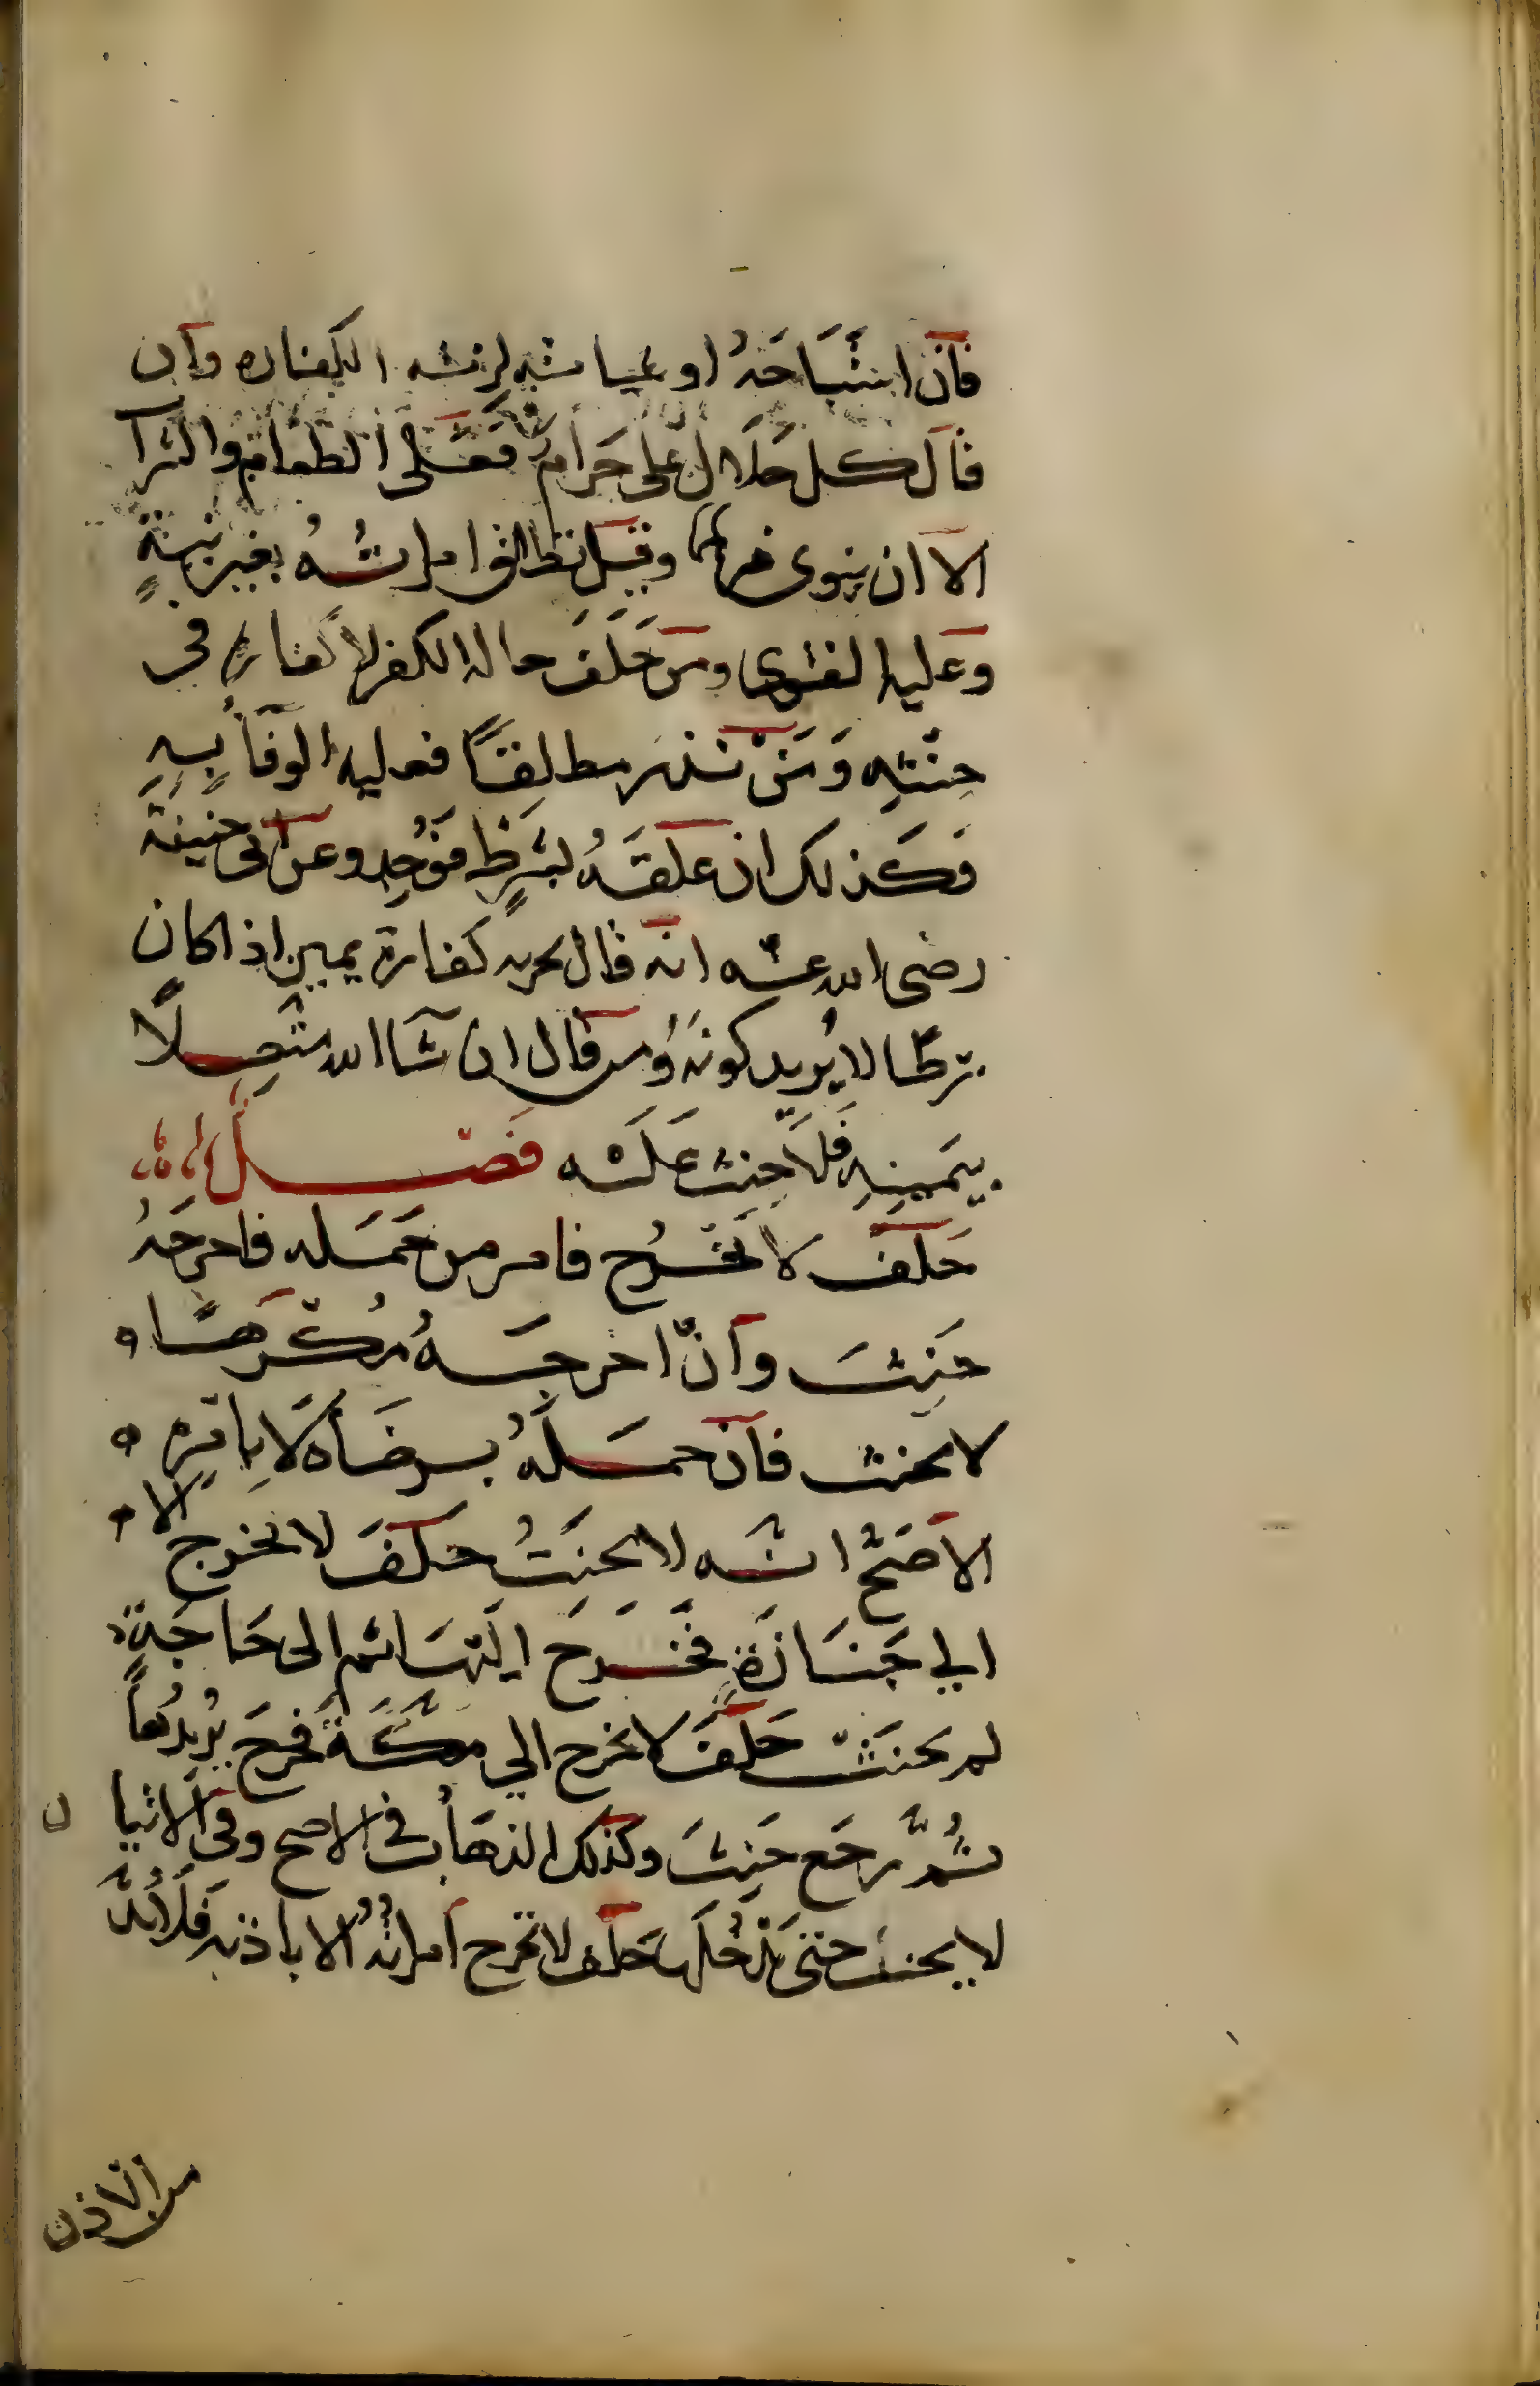 فان استباحه او شيا منه لزمته الكفاره وان
قال كل حلال على حرام فعلى الطعام والشرا
الا ان ينوى غرهما وقيل تطالق امراته بغير نية
وعليه الفتوى ومن حلف حالة الكفر لا كفارة فى
حنثه وَمَنْ نذر مطلقًا فعليه الوفأ به
فكذلك ان علقه بشرط فوجد وعن ابى حنيفة
رضى الله عنه انه قال يجزيه كفارة يمين اذا كان
شرطا لا يُريد كونه ومن قال ان شآ الله متصلًا
بيَمينِهِ فلا حِنث عَلَيْه فَصْل
حَلَفَ لا يخْرُج فامر من حَمَله فاخرجَهُ
حَنِثَ وان اخرجَهُ مُكْرَهًا
لا يحنث فان حمَلَهُ برضَاه لَا بِامْرِهِ
الاصَحّ انَّه لا يحنَثُ حَلَفَ لا يخرج الا
الي جَنَازَةٍ فخَرَجَ اليْهَا ثم الى حَاجَةٍ
لم يحنَثْ حَلَفَ لا يخرج الي مَكَّةَ فخرجَ يُريدُهَا
ثُمَّ رجَع حَنِثَ وكذلك الذهَابُ فى الاصح وفى الاتيا ن
لا يحنث حتى يَدْخُلَها حَلَف لا تخرج امراتُهُ الا باذنه فَلَا بُدَّ
من الاذن